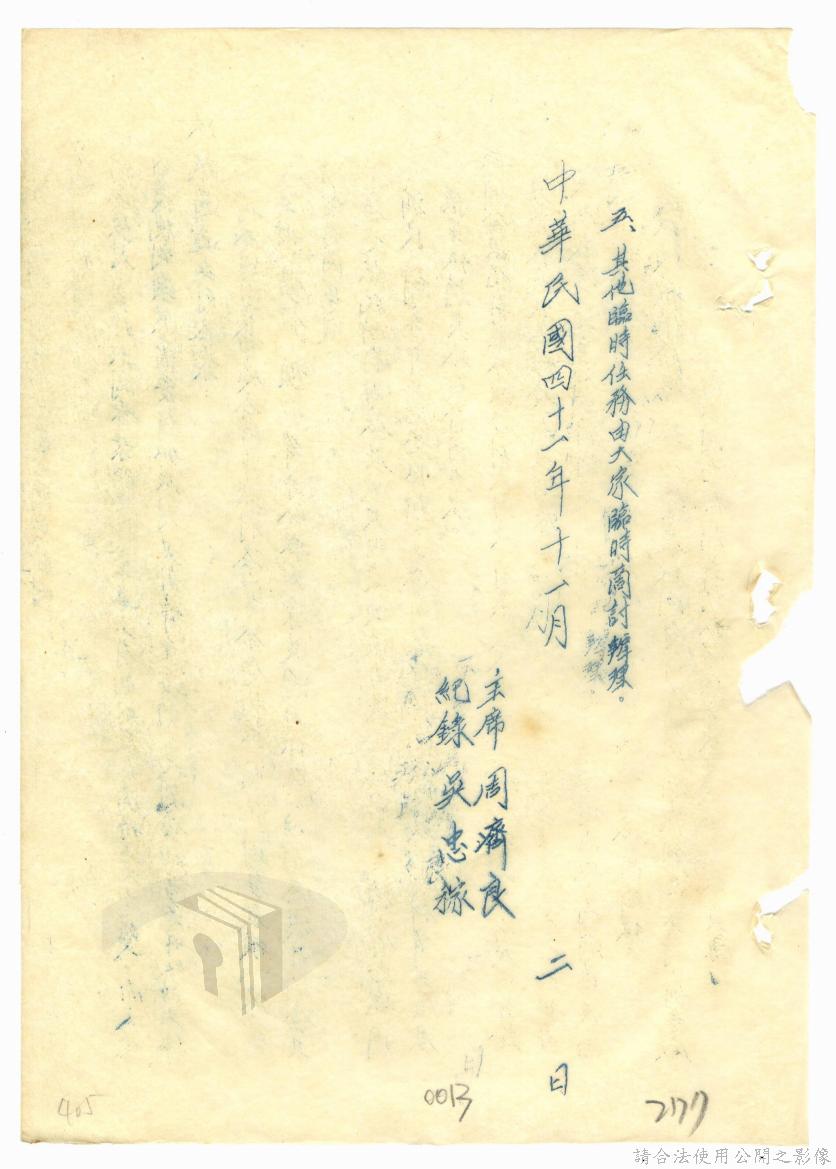 五、其他臨時任務由大家臨時商討辦理。
中華民國四十二年十一月 二 日
主席 周濟良
紀錄 吳忠稼
405
0013
2177
請合法使用公開之影像